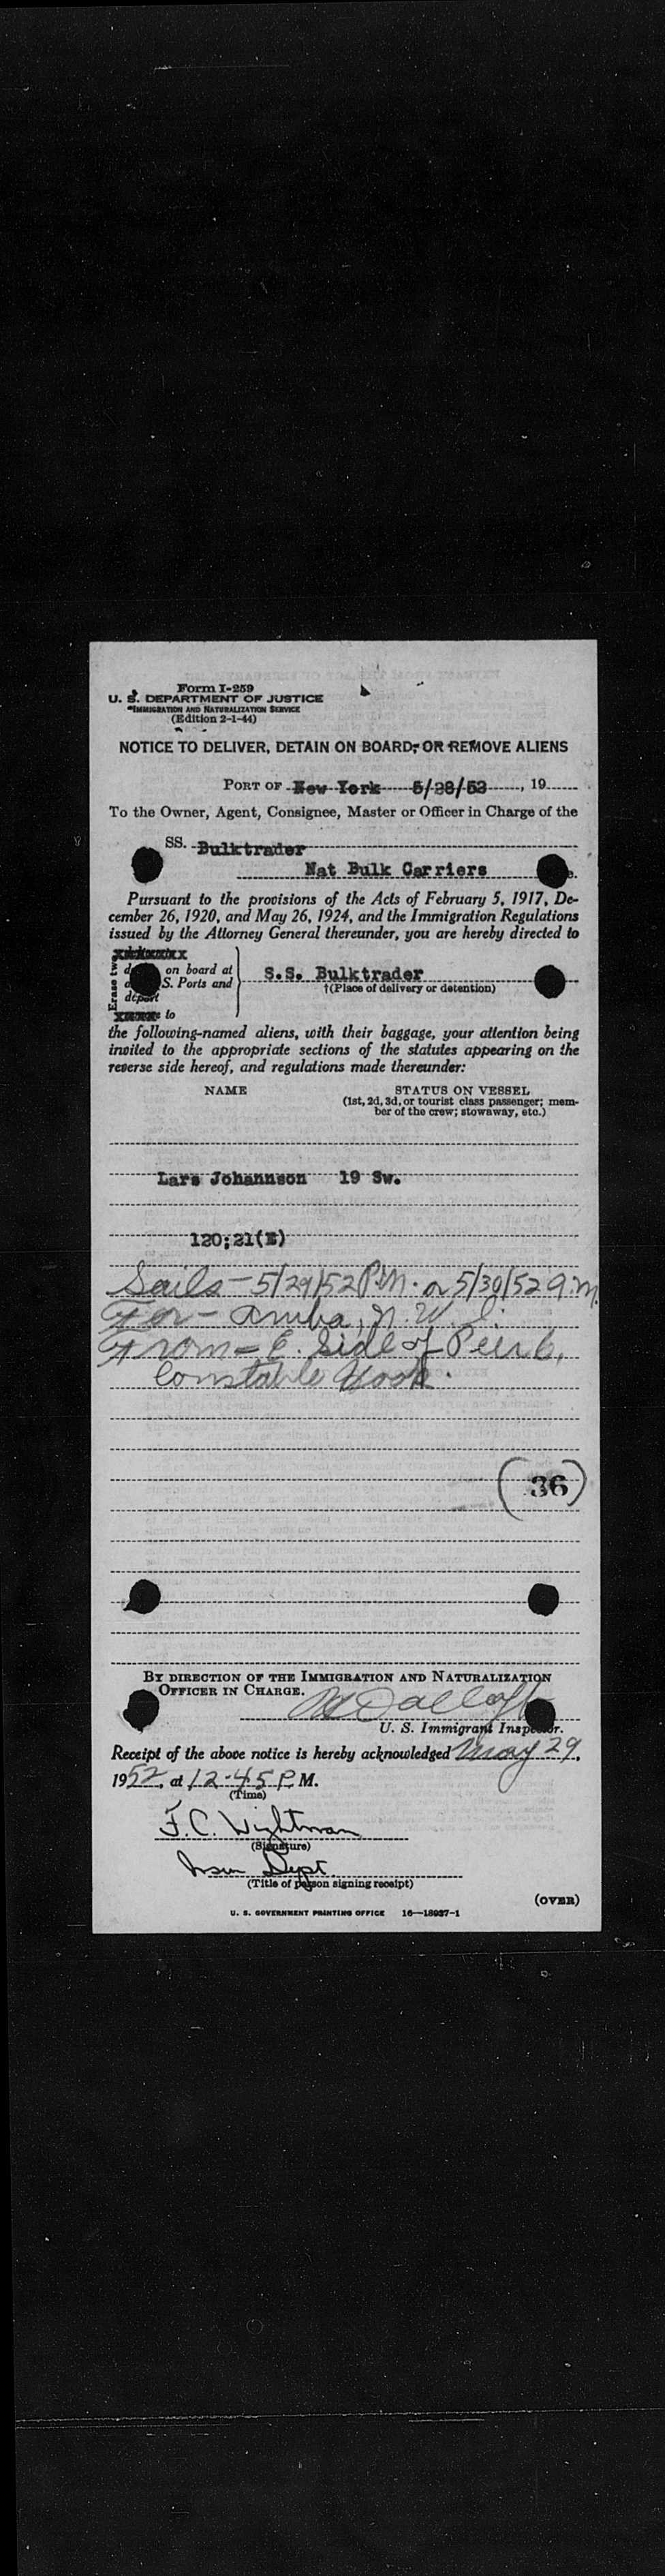 Form I-259
U. S. DEPARTMENT OF JUSTICE
IMMIGRATION AND NATURALIZATION SERVICE
(Edition 2-1-44)
NOTICE TO DELIVER, DETAIN ON BOARD, OR REMOVE ALIENS
PORT OF New York 5/28/52, 19
To the Owner, Agent, Consignee, Master or Officer in Charge of the
SS. Bulktrader
Nat Bulk Carriers
Pursuant to the provisions of the Acts of February 5, 1917, De-
cember 26, 1920, and May 26, 1924, and the Immigration Regulations
issued by the Attorney General thereunder, you are hereby directed to
Erase two
on board at
S. Ports and
deport
to
S.S. Bulktrader
†(Place of delivery or detention)
the following-named aliens, with their baggage, your attention being
invited to the appropriate sections of the statutes appearing on the
reverse side hereof, and regulations made thereunder:
NAME STATUS ON VESSEL
(1st, 2d, 3d, or tourist class passenger; mem-
ber of the crew; stowaway, etc.)
Lars Johannson 19 Sw.
120;21(E)
Sails - 5/29/52 P.M. or 5/30/52 a.m.
For - Aruba, N. W. I.
From - E. Side of Peir 6,
Constable Hook.
(36)
BY DIRECTION OF THE IMMIGRATION AND NATURALIZATION
OFFICER IN CHARGE.
U. S. Immigrant Inspector.
Receipt of the above notice is hereby acknowledged May 29,
1952, at 12-45 P.M.
(Time)
F. C. Wightman
(Signature)
Dept.
(Title of person signing receipt)
(OVER)
U. S. GOVERNMENT PRINTING OFFICE 16—18937-1